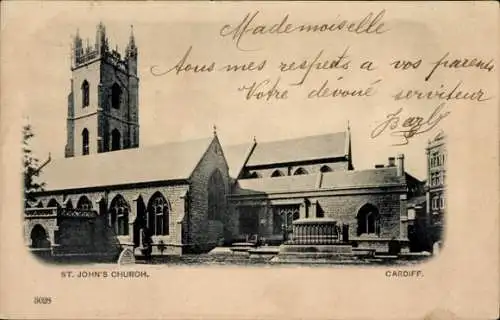 Mademoiselle
Tous mes respects a vos parents
Votre dévoué serviteur
ST. JOHN'S CHURCH.
CARDIFF.